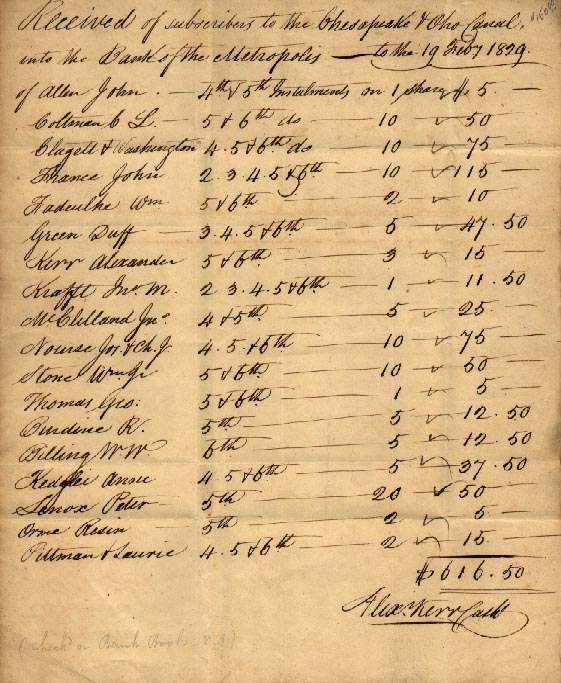 Received of subscribers to the Chesapeake & Ohio Canal,
into the Bank of the Metropolis — to the 19 Feby 1829.
of Allen John. — 4th & 5th Instalments on 1 share $ 5. —
Coltman C L. — 5 & 6th do 10 50
Clagett & Washington 4. 5 & 6th do 10 75
France John 2. 3. 4. 5 & 6th — 10 115
Wm. 5 & 6th — 2 10
Green Duff — 3. 4. 5 & 6th — 5 47. 50
Kerr Alexander 5 & 6th — 3 15
Krafft Jno. M. 2. 3. 4. 5 & 6th — 1 11. 50
McClelland Jno. 4 & 5th — 5 25
Nourse Jos. & Ch. J. 4. 5 & 6th — 10 75
Stone Wm Jr 5 & 6th — 10 50
Thomas Geo. 5 & 6th — 1 5
Burdine R. 5th — 5 12. 50
Billing W W. 6th — 5 12. 50
Anne 4. 5 & 6th — 5 37. 50
Lenox Peter 5th — 20 50
Orme Resin 5th — 2 5
Pittman & Laurie 4. 5 & 6th — 2 15
$616. 50
Alexr. Kerr Cashr
(check on Bank Book